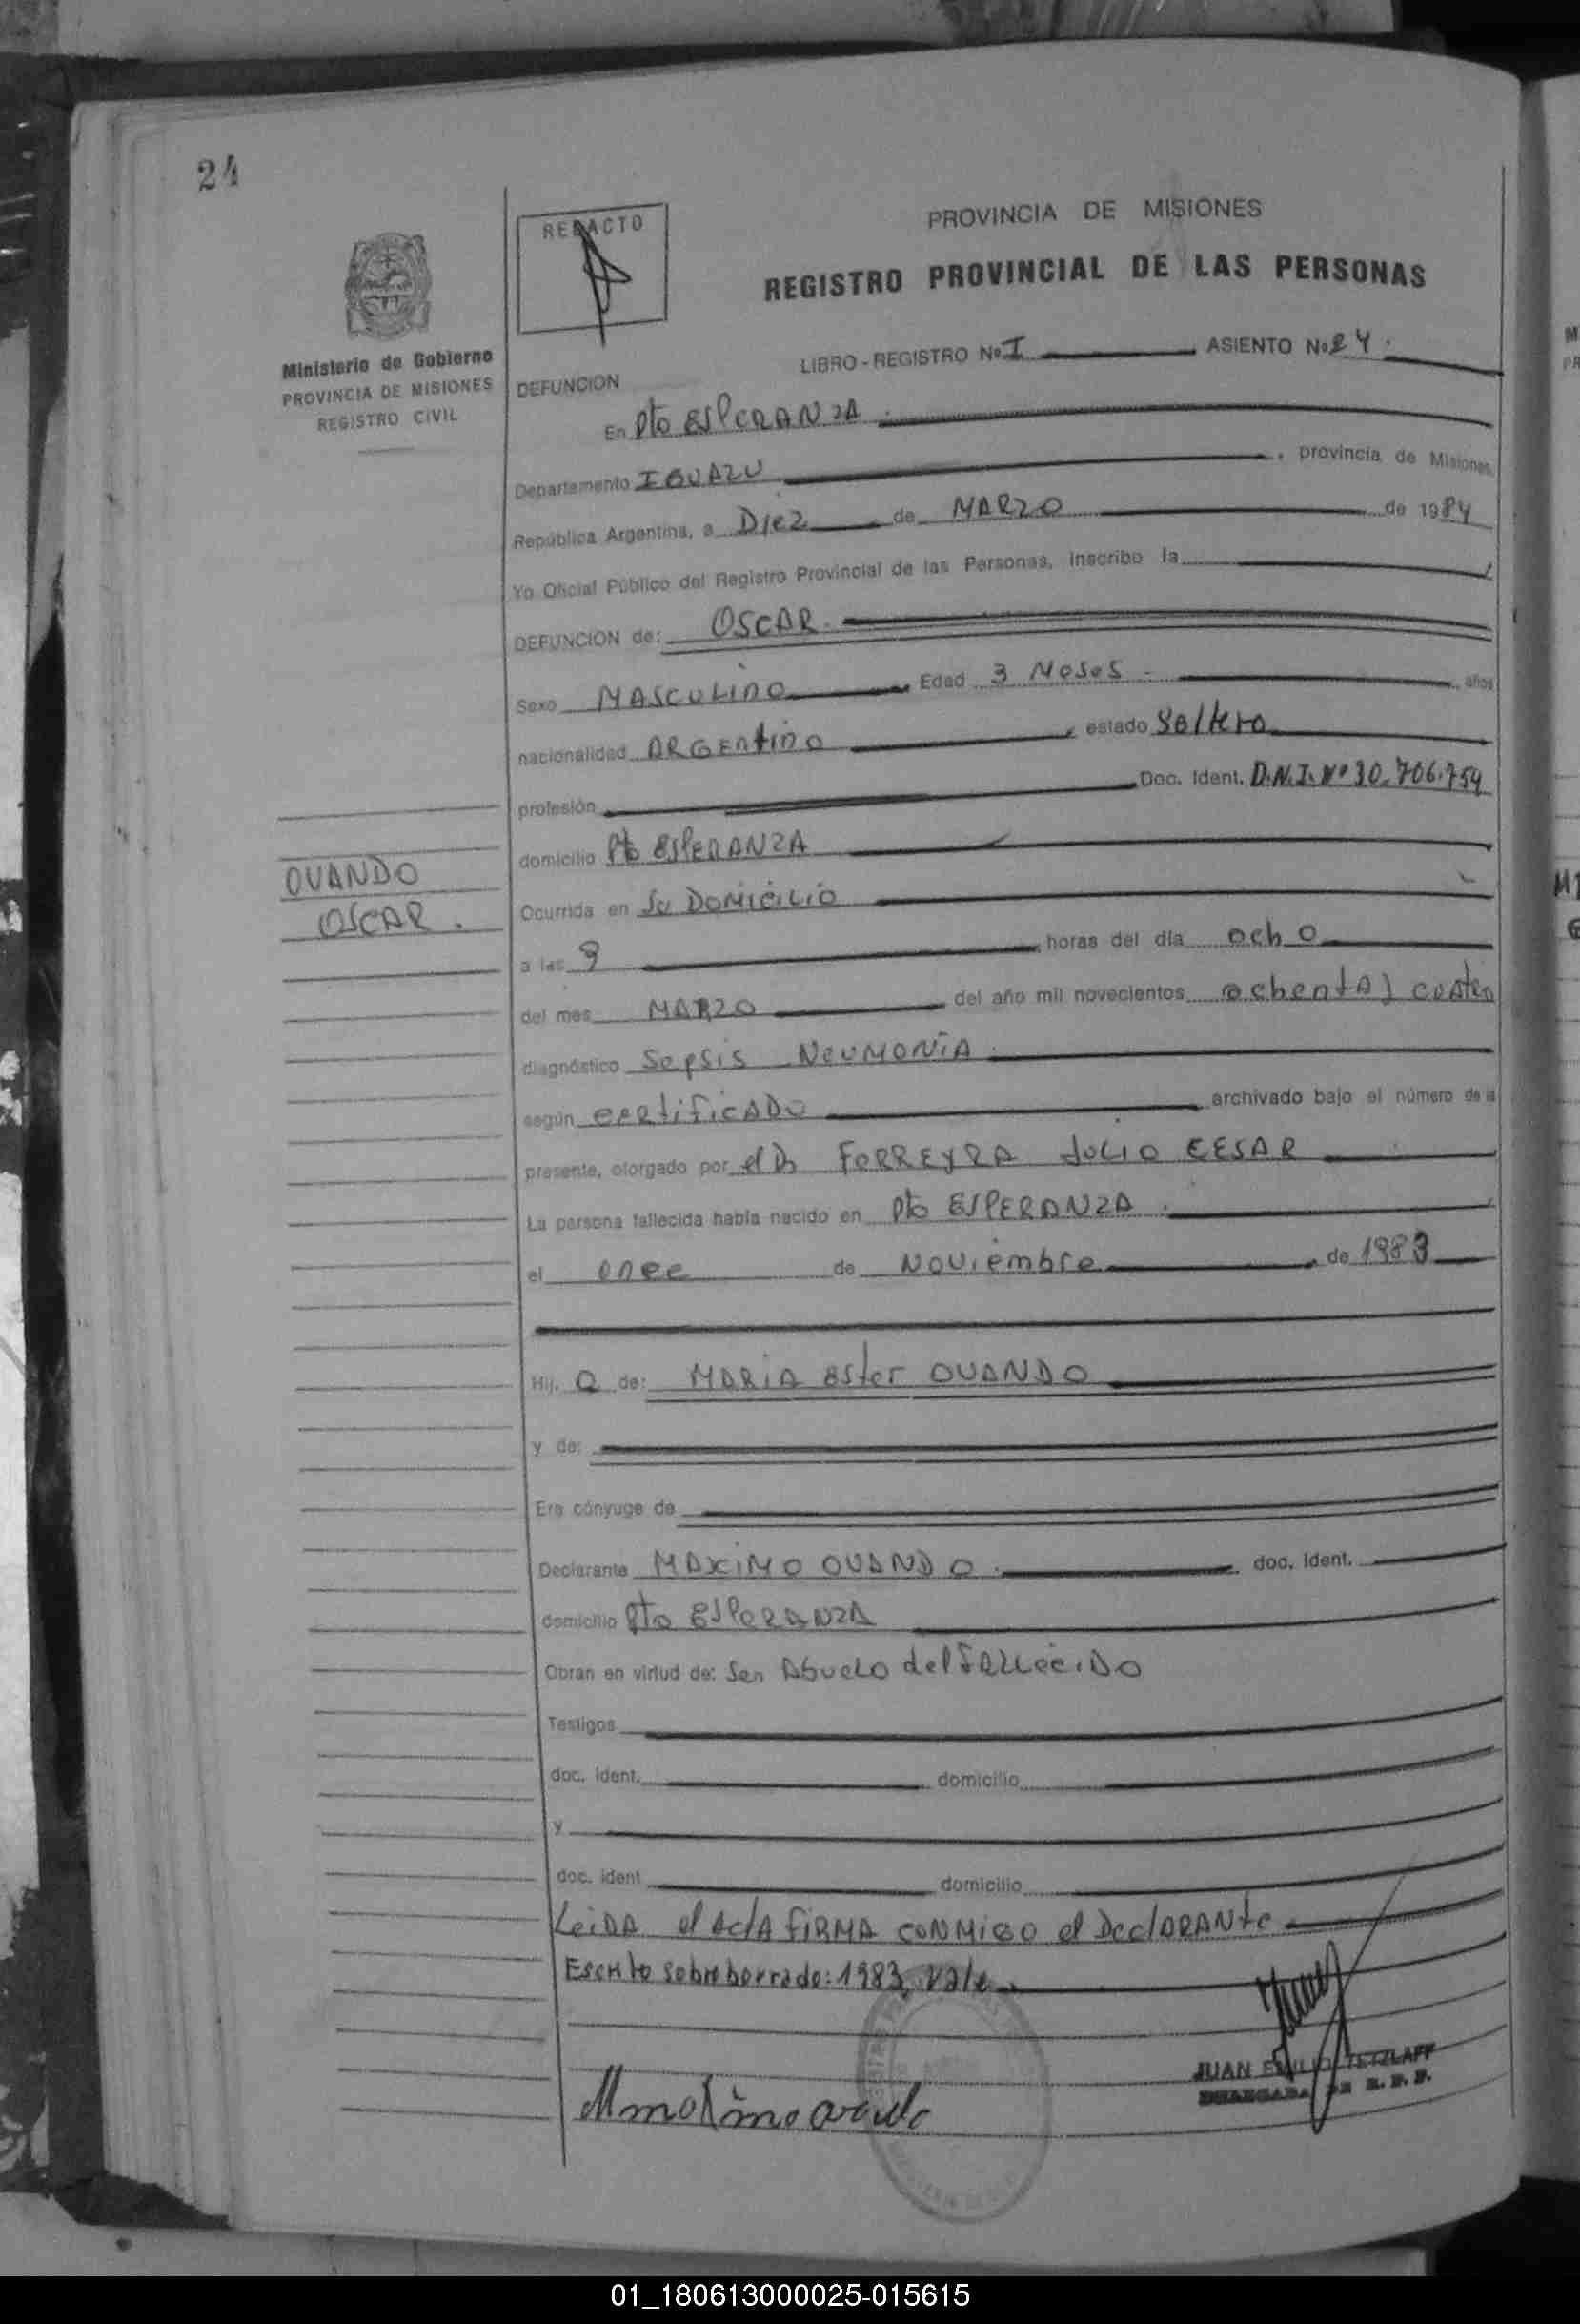 24
REDACTO
PROVINCIA DE MISIONES
REGISTRO PROVINCIAL DE LAS PERSONAS
Ministerio de Gobierno
PROVINCIA DE MISIONES
REGISTRO CIVIL
LIBRO - REGISTRO No I ASIENTO No 24.
DEFUNCION
En Pto ESPERANZA.
Departamento IGUAZU, provincia de Misiones,
República Argentina, a Diez de MARZO de 1984
Yo Oficial Público del Registro Provincial de las Personas, inscribo la
DEFUNCION de: OSCAR.
Sexo MASCULINO Edad 3 Meses años
nacionalidad ARGENtiNO, estado Soltero
profesión Doc. Ident. D.N.I. Nº 30.706.754
domicilio Pto ESPERANZA
OVANDO
OSCAR.
Ocurrida en Su DOMICILIO
a las 9 horas del día ocho
del mes MARZO del año mil novecientos ochentA y cuatro
diagnóstico Sepsis NeuMONiA.
según certificADO archivado bajo el número de la
presente, otorgado por el Dr FeRREYRA JULIO CESAR
La persona fallecida había nacido en Pto ESPERANZA.
el once de Noviembre de 1983
Hij. o de: MARiA Ester OVANDO
y de:
Era cónyuge de
Declarante MAXIMO OVANDO. doc. ident.
domicilio Pto ESPeRANZA
Obran en virtud de: Ser Abuelo del FALLeciDo
Testigos
doc. ident. domicilio
y
doc. ident domicilio
LeiDA el ActA FiRMA CONMIGO el DeclARANte
Escrito sobre borrado: 1983, Vale.
JUAN EMILIO TETZLAFF
01_180613000025-015615